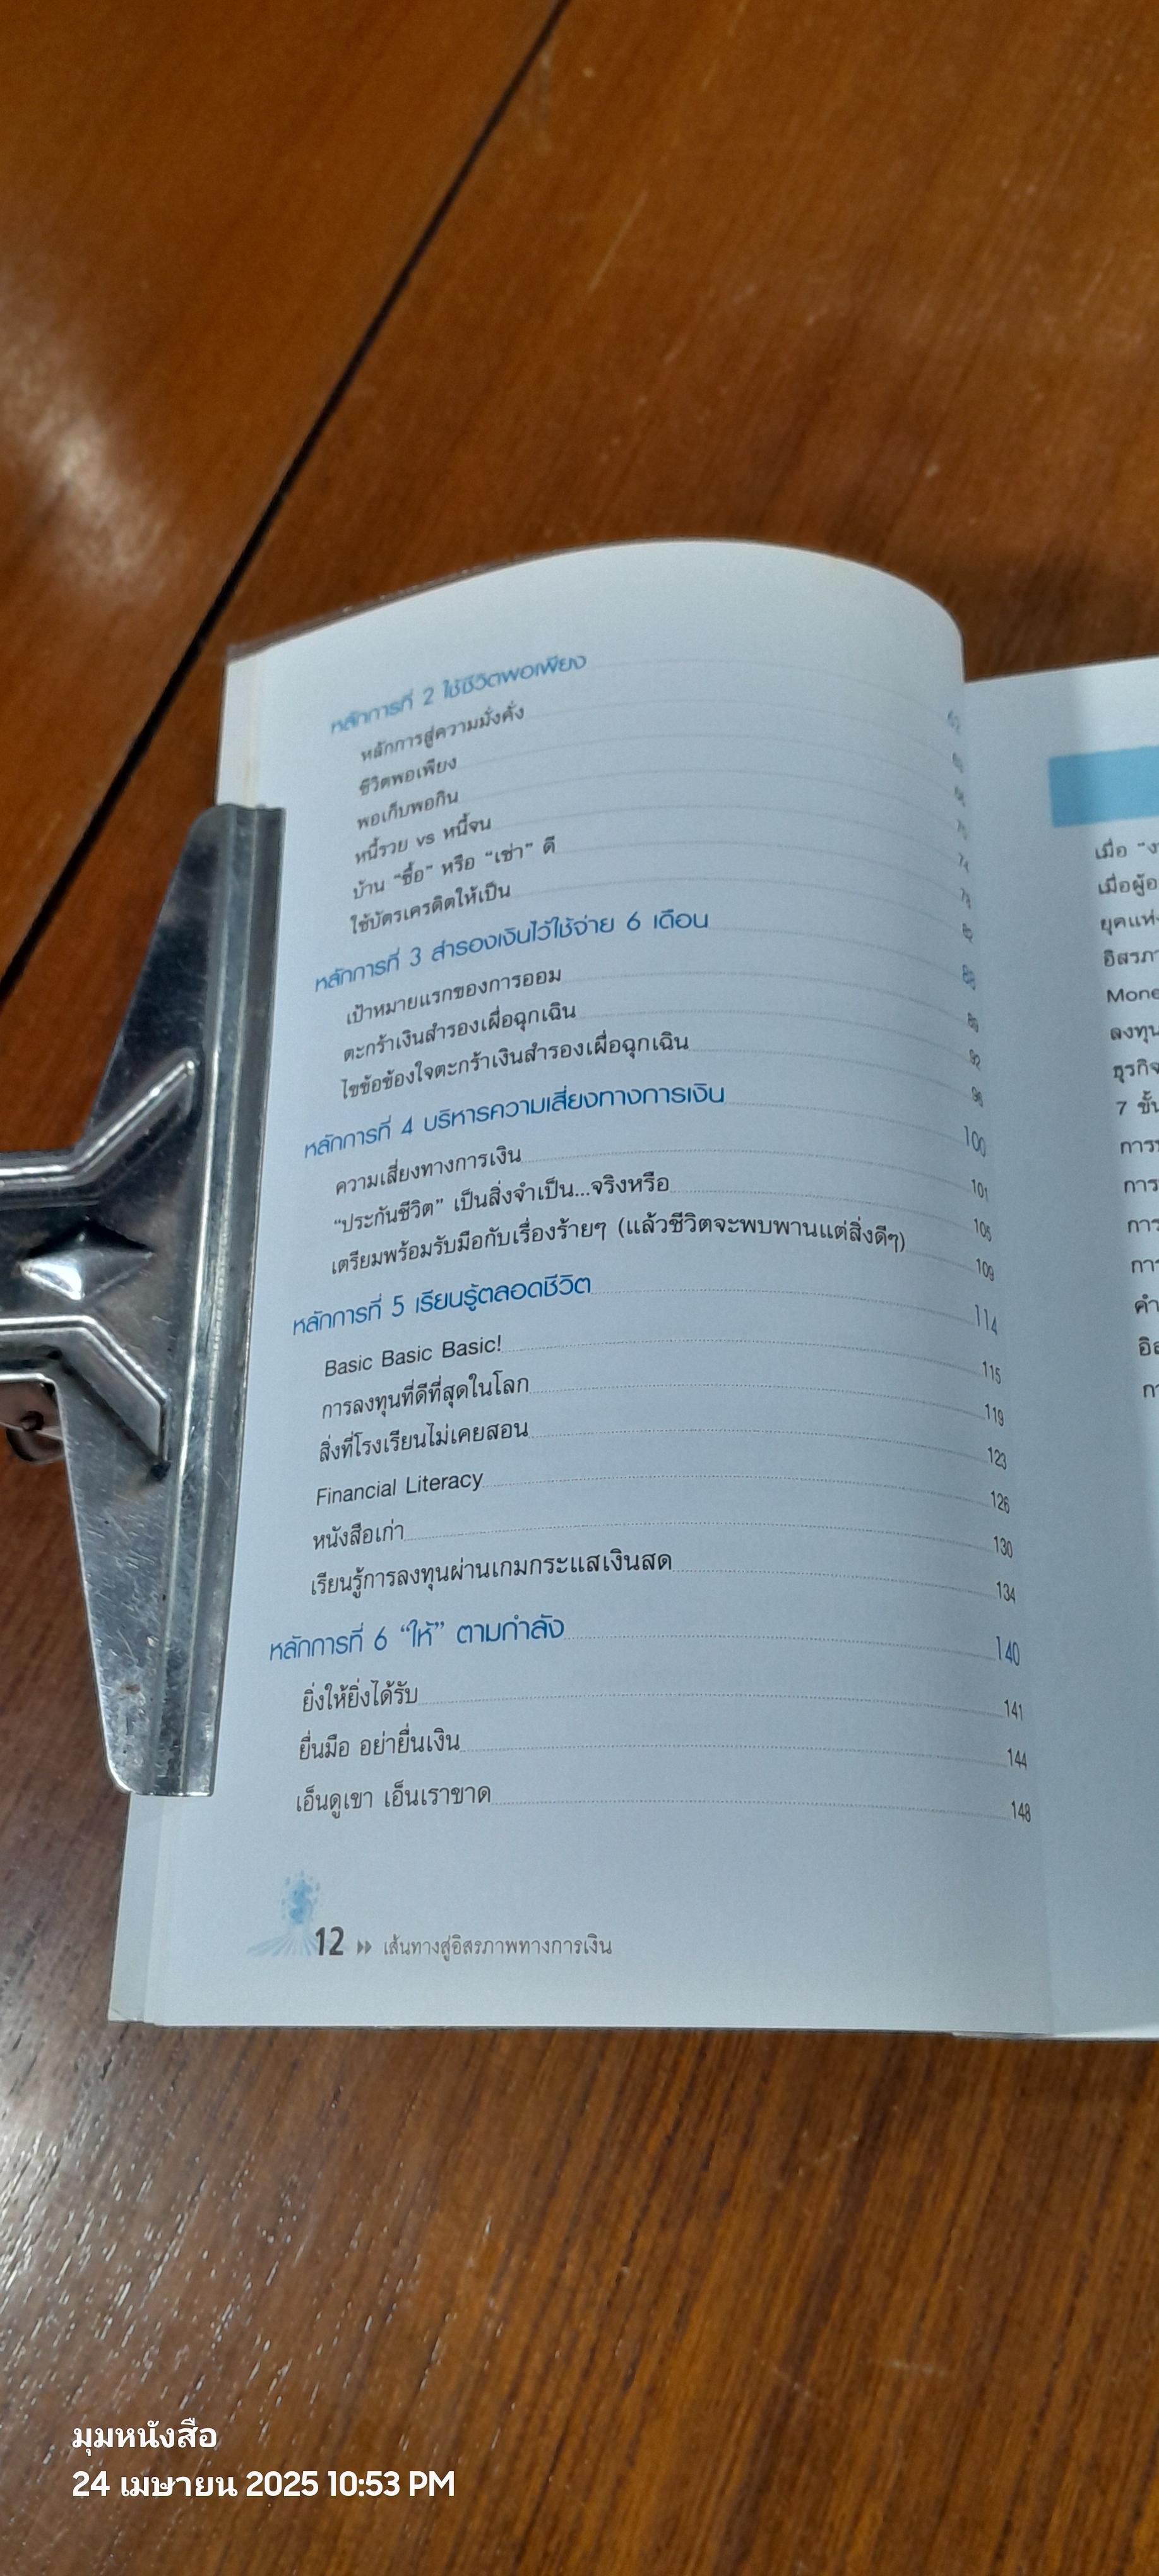 หลักการที่ 2 ใช้ชีวิตพอเพียง 62
หลักการสู่ความมั่งคั่ง 63
ชีวิตพอเพียง
พอเก็บพอกิน 70
หนี้รวย vs หนี้จน 74
บ้าน “ซื้อ” หรือ “เช่า” ดี
ใช้บัตรเครดิตให้เป็น 82
หลักการที่ 3 สำรองเงินไว้ใช้จ่าย 6 เดือน 88
เป้าหมายแรกของการออม 89
ตะกร้าเงินสำรองเผื่อฉุกเฉิน 92
ไขข้อข้องใจตะกร้าเงินสำรองเผื่อฉุกเฉิน
หลักการที่ 4 บริหารความเสี่ยงทางการเงิน 100
ความเสี่ยงทางการเงิน 101
“ประกันชีวิต” เป็นสิ่งจำเป็น...จริงหรือ 105
เตรียมพร้อมรับมือกับเรื่องร้ายๆ (แล้วชีวิตจะพบพานแต่สิ่งดีๆ) 109
หลักการที่ 5 เรียนรู้ตลอดชีวิต 114
Basic Basic Basic! 115
การลงทุนที่ดีที่สุดในโลก 119
สิ่งที่โรงเรียนไม่เคยสอน 123
Financial Literacy 126
หนังสือเก่า 130
เรียนรู้การลงทุนผ่านเกมกระแสเงินสด 134
หลักการที่ 6 “ให้” ตามกำลัง 140
ยิ่งให้ยิ่งได้รับ 141
ยื่นมือ อย่ายื่นเงิน 144
เอ็นดูเขา เอ็นเราขาด 148
12 เส้นทางสู่อิสรภาพทางการเงิน
เมื่อ
ยุคแห่ง
7 ขั้น
การ
การ
การ
มุมหนังสือ
24 เมษายน 2025 10:53 PM